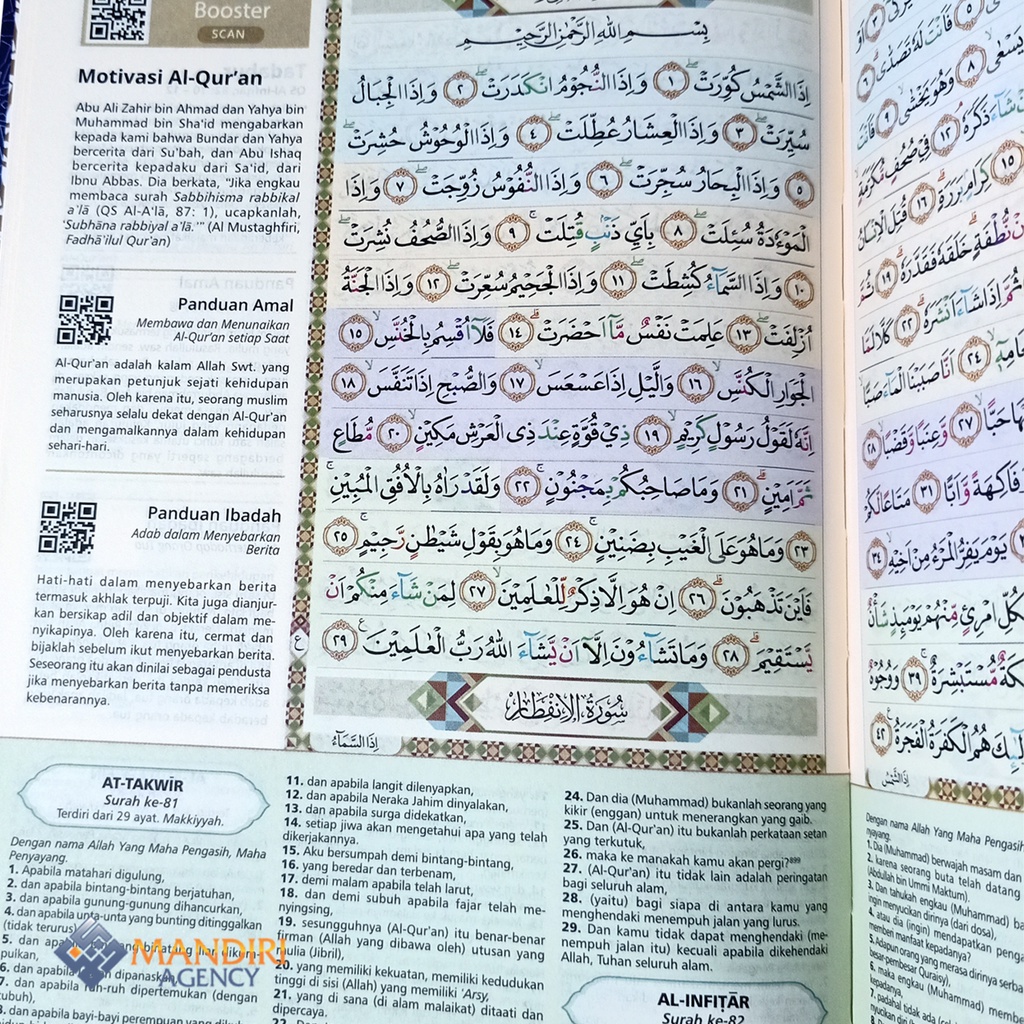 Booster
SCAN
Motivasi Al-Qur’an
Abu Ali Zahir bin Ahmad dan Yahya bin
Muhammad bin Sha'id mengabarkan
kepada kami bahwa Bundar dan Yahya
bercerita dari Su'bah, dan Abu Ishaq
bercerita kepadaku dari Sa'id, dari
Ibnu Abbas. Dia berkata, “Jika engkau
membaca surah Sabbihisma rabbikal
a'lā (QS Al-A'lā, 87: 1), ucapkanlah,
‘Subhāna rabbiyal a'lā.’” (Al Mustaghfiri,
Fadhā'ilul Qur'an)
Panduan Amal
Membawa dan Menunaikan
Al-Qur'an setiap Saat
Al-Qur'an adalah kalam Allah Swt. yang
merupakan petunjuk sejati kehidupan
manusia. Oleh karena itu, seorang muslim
seharusnya selalu dekat dengan Al-Qur'an
dan mengamalkannya dalam kehidupan
sehari-hari.
Panduan Ibadah
Adab dalam Menyebarkan
Berita
Hati-hati dalam menyebarkan berita
termasuk akhlak terpuji. Kita juga dianjur-
kan bersikap adil dan objektif dalam me-
nyikapinya. Oleh karena itu, cermat dan
bijaklah sebelum ikut menyebarkan berita.
Seseorang itu akan dinilai sebagai pendusta
jika menyebarkan berita tanpa memeriksa
kebenarannya.
بِسْمِ اللّٰهِ الرَّحْمٰنِ الرَّحِيْمِ
اِذَا الشَّمْسُ كُوِّرَتْۖ ١ وَاِذَا النُّجُوْمُ انْكَدَرَتْۖ ٢ وَاِذَا الْجِبَالُ
سُيِّرَتْۖ ٣ وَاِذَا الْعِشَارُ عُطِّلَتْۖ ٤ وَاِذَا الْوُحُوْشُ حُشِرَتْۖ
٥ وَاِذَا الْبِحَارُ سُجِّرَتْۖ ٦ وَاِذَا النُّفُوْسُ زُوِّجَتْۖ ٧ وَاِذَا
الْمَوْءٗدَةُ سُىِٕلَتْۖ ٨ بِاَيِّ ذَنْۢبٍ قُتِلَتْۚ ٩ وَاِذَا الصُّحُفُ نُشِرَتْۖ
١٠ وَاِذَا السَّمَاۤءُ كُشِطَتْۖ ١١ وَاِذَا الْجَحِيْمُ سُعِّرَتْۖ ١٢ وَاِذَا الْجَنَّةُ
اُزْلِفَتْۖ ١٣ عَلِمَتْ نَفْسٌ مَّآ اَحْضَرَتْۗ ١٤ فَلَآ اُقْسِمُ بِالْخُنَّسِۙ ١٥
الْجَوَارِ الْكُنَّسِۙ ١٦ وَالَّيْلِ اِذَا عَسْعَسَۙ ١٧ وَالصُّبْحِ اِذَا تَنَفَّسَۙ ١٨
اِنَّهٗ لَقَوْلُ رَسُوْلٍ كَرِيْمٍۙ ١٩ ذِيْ قُوَّةٍ عِنْدَ ذِى الْعَرْشِ مَكِيْنٍۙ ٢٠ مُّطَاعٍ
ثَمَّ اَمِيْنٍۗ ٢١ وَمَا صَاحِبُكُمْ بِمَجْنُوْنٍۚ ٢٢ وَلَقَدْ رَاٰهُ بِالْاُفُقِ الْمُبِيْنِۚ
٢٣ وَمَا هُوَ عَلَى الْغَيْبِ بِضَنِيْنٍۚ ٢٤ وَمَا هُوَ بِقَوْلِ شَيْطٰنٍ رَّجِيْمٍۚ ٢٥
فَاَيْنَ تَذْهَبُوْنَۗ ٢٦ اِنْ هُوَ اِلَّا ذِكْرٌ لِّلْعٰلَمِيْنَۙ ٢٧ لِمَنْ شَاۤءَ مِنْكُمْ اَنْ
يَّسْتَقِيْمَۗ ٢٨ وَمَا تَشَاۤءُوْنَ اِلَّآ اَنْ يَّشَاۤءَ اللّٰهُ رَبُّ الْعٰلَمِيْنَ ࣖ ٢٩
سُوْرَةُ الْاِنْفِطَارِ
اِذَا السَّمَاۤءُ
AT-TAKWĪR
Surah ke-81
Terdiri dari 29 ayat. Makkiyyah.
Dengan nama Allah Yang Maha Pengasih, Maha
Penyayang.
1. Apabila matahari digulung,
2. dan apabila bintang-bintang berjatuhan,
3. dan apabila gunung-gunung dihancurkan,
4. dan apabila unta-unta yang bunting ditinggalkan
(tidak terurus)
MANDIRI
AGENCY
6. dan apabila dipanaskan
7. dan apabila ruh-ruh dipertemukan (dengan
tubuh),
8. dan apabila bayi-bayi perempuan yang
11. dan apabila langit dilenyapkan,
12. dan apabila Neraka Jahim dinyalakan,
13. dan apabila surga didekatkan,
14. setiap jiwa akan mengetahui apa yang telah
dikerjakannya.
15. Aku bersumpah demi bintang-bintang,
16. yang beredar dan terbenam,
17. demi malam apabila telah larut,
18. dan demi subuh apabila fajar telah me-
nyingsing,
19. sesungguhnya (Al-Qur'an) itu benar-benar
firman (Allah yang dibawa oleh) utusan yang
mulia (Jibril),
20. yang memiliki kekuatan, memiliki kedudukan
tinggi di sisi (Allah) yang memiliki 'Arsy,
21. yang di sana (di alam malaikat) ditaati dan
dipercaya.
24. Dan dia (Muhammad) bukanlah seorang yang
kikir (enggan) untuk menerangkan yang gaib.
25. Dan (Al-Qur'an) itu bukanlah perkataan setan
yang terkutuk,
26. maka ke manakah kamu akan pergi?⁸⁹⁹
27. (Al-Qur'an) itu tidak lain adalah peringatan
bagi seluruh alam,
28. (yaitu) bagi siapa di antara kamu yang
menghendaki menempuh jalan yang lurus.
29. Dan kamu tidak dapat menghendaki (me-
nempuh jalan itu) kecuali apabila dikehendaki
Allah, Tuhan seluruh alam.
AL-INFIṬĀR
Surah ke-82
Dengan nama Allah Yang Maha Pengasih
nyayang.
1. Dia (Muhammad) berwajah masam dan
2. karena seorang buta telah datang
(Abdullah bin Ummi Maktum).
3. Dan tahukah engkau (Muhammad) ba
ingin menyucikan dirinya (dari dosa),
4. atau dia (ingin) mendapatkan penga
memberi manfaat kepadanya?
5. Adapun orang yang merasa dirinya serba
besar-pembesar Quraisy),
6. maka engkau (Muhammad) membe
kepadanya,
7. padahal tidak ada (cela